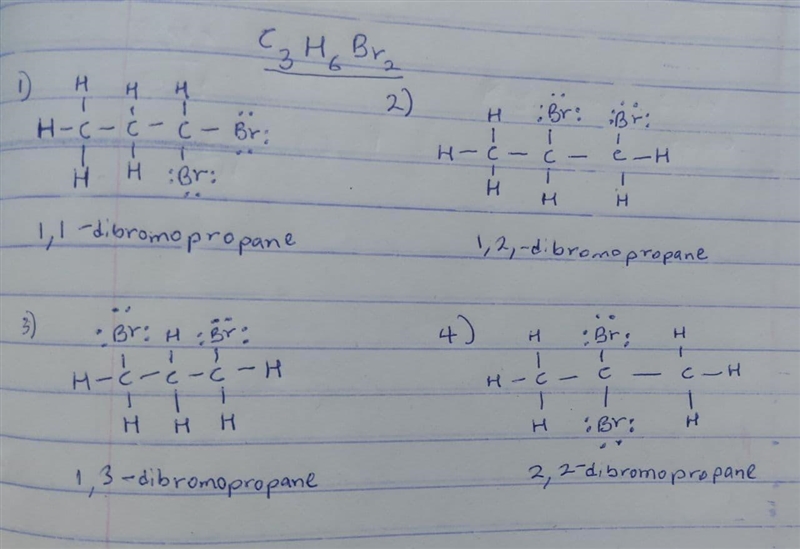 C3H6Br2
1)
H H H
H - C - C - C - Br:
H H :Br:
1,1-dibromopropane
2)
H :Br: :Br:
H - C - C - C - H
H H H
1,2,-dibromopropane
3)
:Br: H :Br:
H - C - C - C - H
H H H
1,3-dibromopropane
4)
H :Br: H
H - C - C - C - H
H :Br: H
2,2-dibromopropane